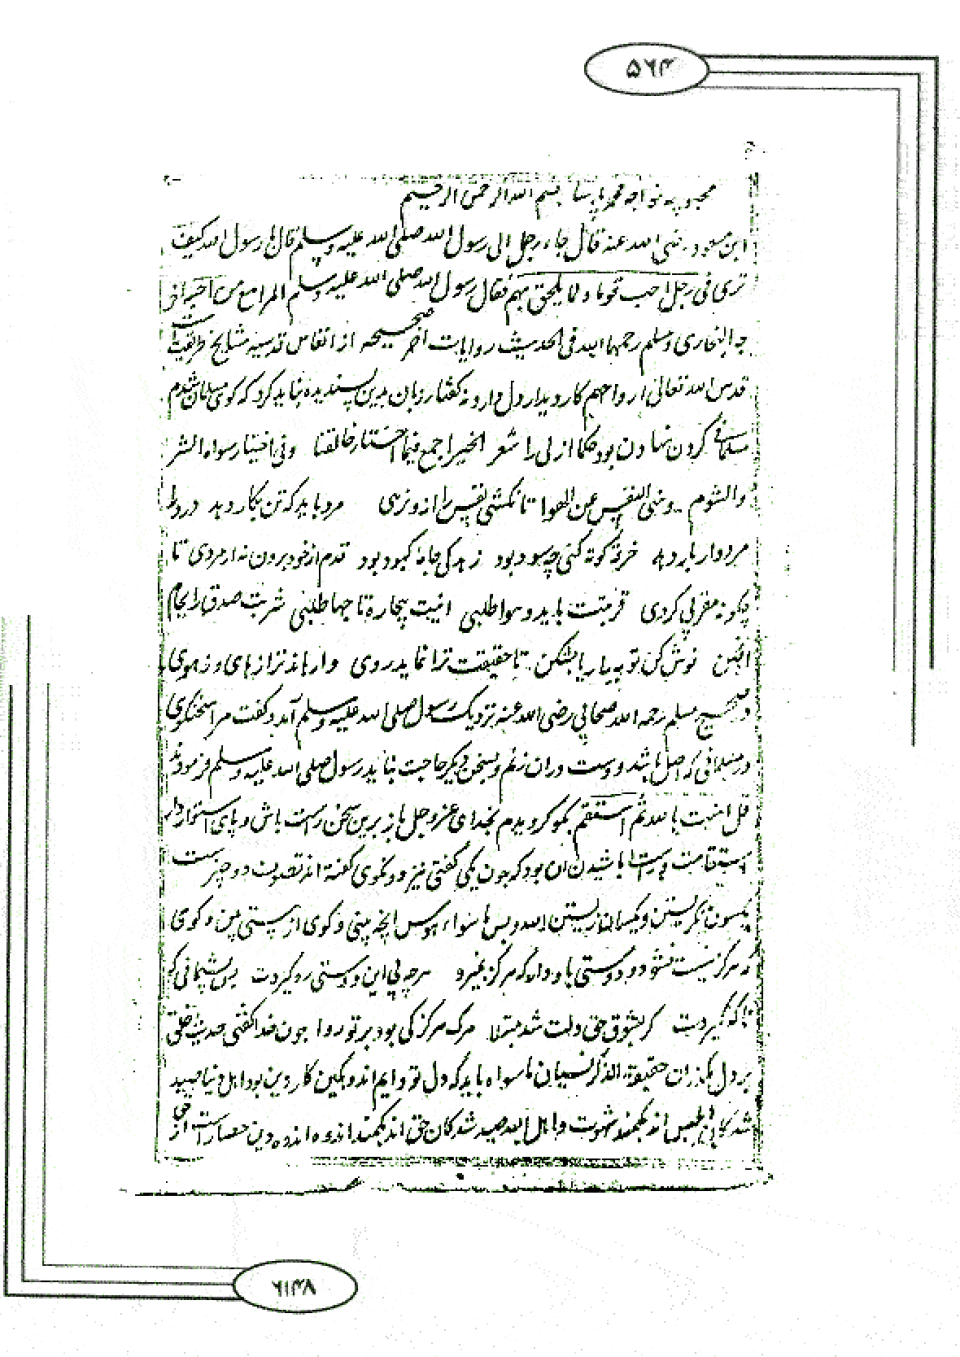 ۵۶۴
محبوبیه خواجه محمد پارسا بسم الله الرحمن الرحیم
ابن مسعود رضی الله عنه قال جاء رجل الی رسول الله صلی الله علیه وسلم قال یا رسول الله کیف
تری فی رجل احب قوما ولما یلحق بهم فقال رسول الله صلی الله علیه وسلم المرأ مع من احب اخر
جه البخاری ومسلم رحمهما الله فی الحدیث روایات اخر صحیحه از انفاس قدسیه مشایخ طریقت است
قدس الله تعالی ارواحهم کار دیدار دل دارد نه گفتار زبان بدین پسندیده نباید کرد که کوی مسلمان شدم
مسلمانی گردن نهادن بود حکم ازلی را شعر الخیر اجمع فیما اختار خالقنا وفی اختیار سواه الشر
والشوم ونهی النفس عن الهوا تا نکشی نفس را از و نرهی مرد باید که تن بکار دهد در وطا
مردوار بار دهد خرقه کوته کنی چه سود بود زهد کی جامهٔ کبود بود قدم از خود برون نه از مردی تا
چگونه مقربی کردی قربتت باید و هوا طلبی اینت بیچاره تا جها طلبی شربت صدق را بجام
انجمن نوش کن توبه یا ریا بشکن تا حقیقت ترا نماید روی وارهاند ترا زهای و زهوی
در صحیح مسلم رحمه الله صحابی رضی الله عنه نزدیک رسول صلی الله علیه وسلم آمد و گفت مرا سخنکوی
در مسلمانی که اصل باشد و دست دران زنم و بسخن دیگر حاجت نیاید رسول صلی الله علیه وسلم فرمودند
قل امنت بالله ثم استقم بگو گرویدم بخدای عز وجل باز برین سخن راست باش و پای استوار دار
استقامت و راست باشیدن آن بود که چون یکی گفتی نیز دو نگوی کفته اند تصوف دو چیز است
یکسون نگریستن و یکسان زیستن الله و بس ما سواه هوس انچه بینی و کوی از هستی بین و کوی
که هرگز نیست نشود و دوستی با او دار که هرگز نمیرد هر چه بی این دوستی رو گیردت بس پشیمانی که
ناگه گیردت گر بشوق حق دلت شد مبتلا مرگ هرگز کی بود بر تو روا چون خدا گفتی حدیث خلق
بر دل مگذران حقیقة الذکر نسیان ما سواه باید که دل تو دایم اندوهگین کار دین بود اهل دنیا صید
شدگان ابلیس اند بکمند شهوت و اهل الله صید شدگان حق اند بکمند اندوه اندوه دین حصار است از
۶۱۳۸